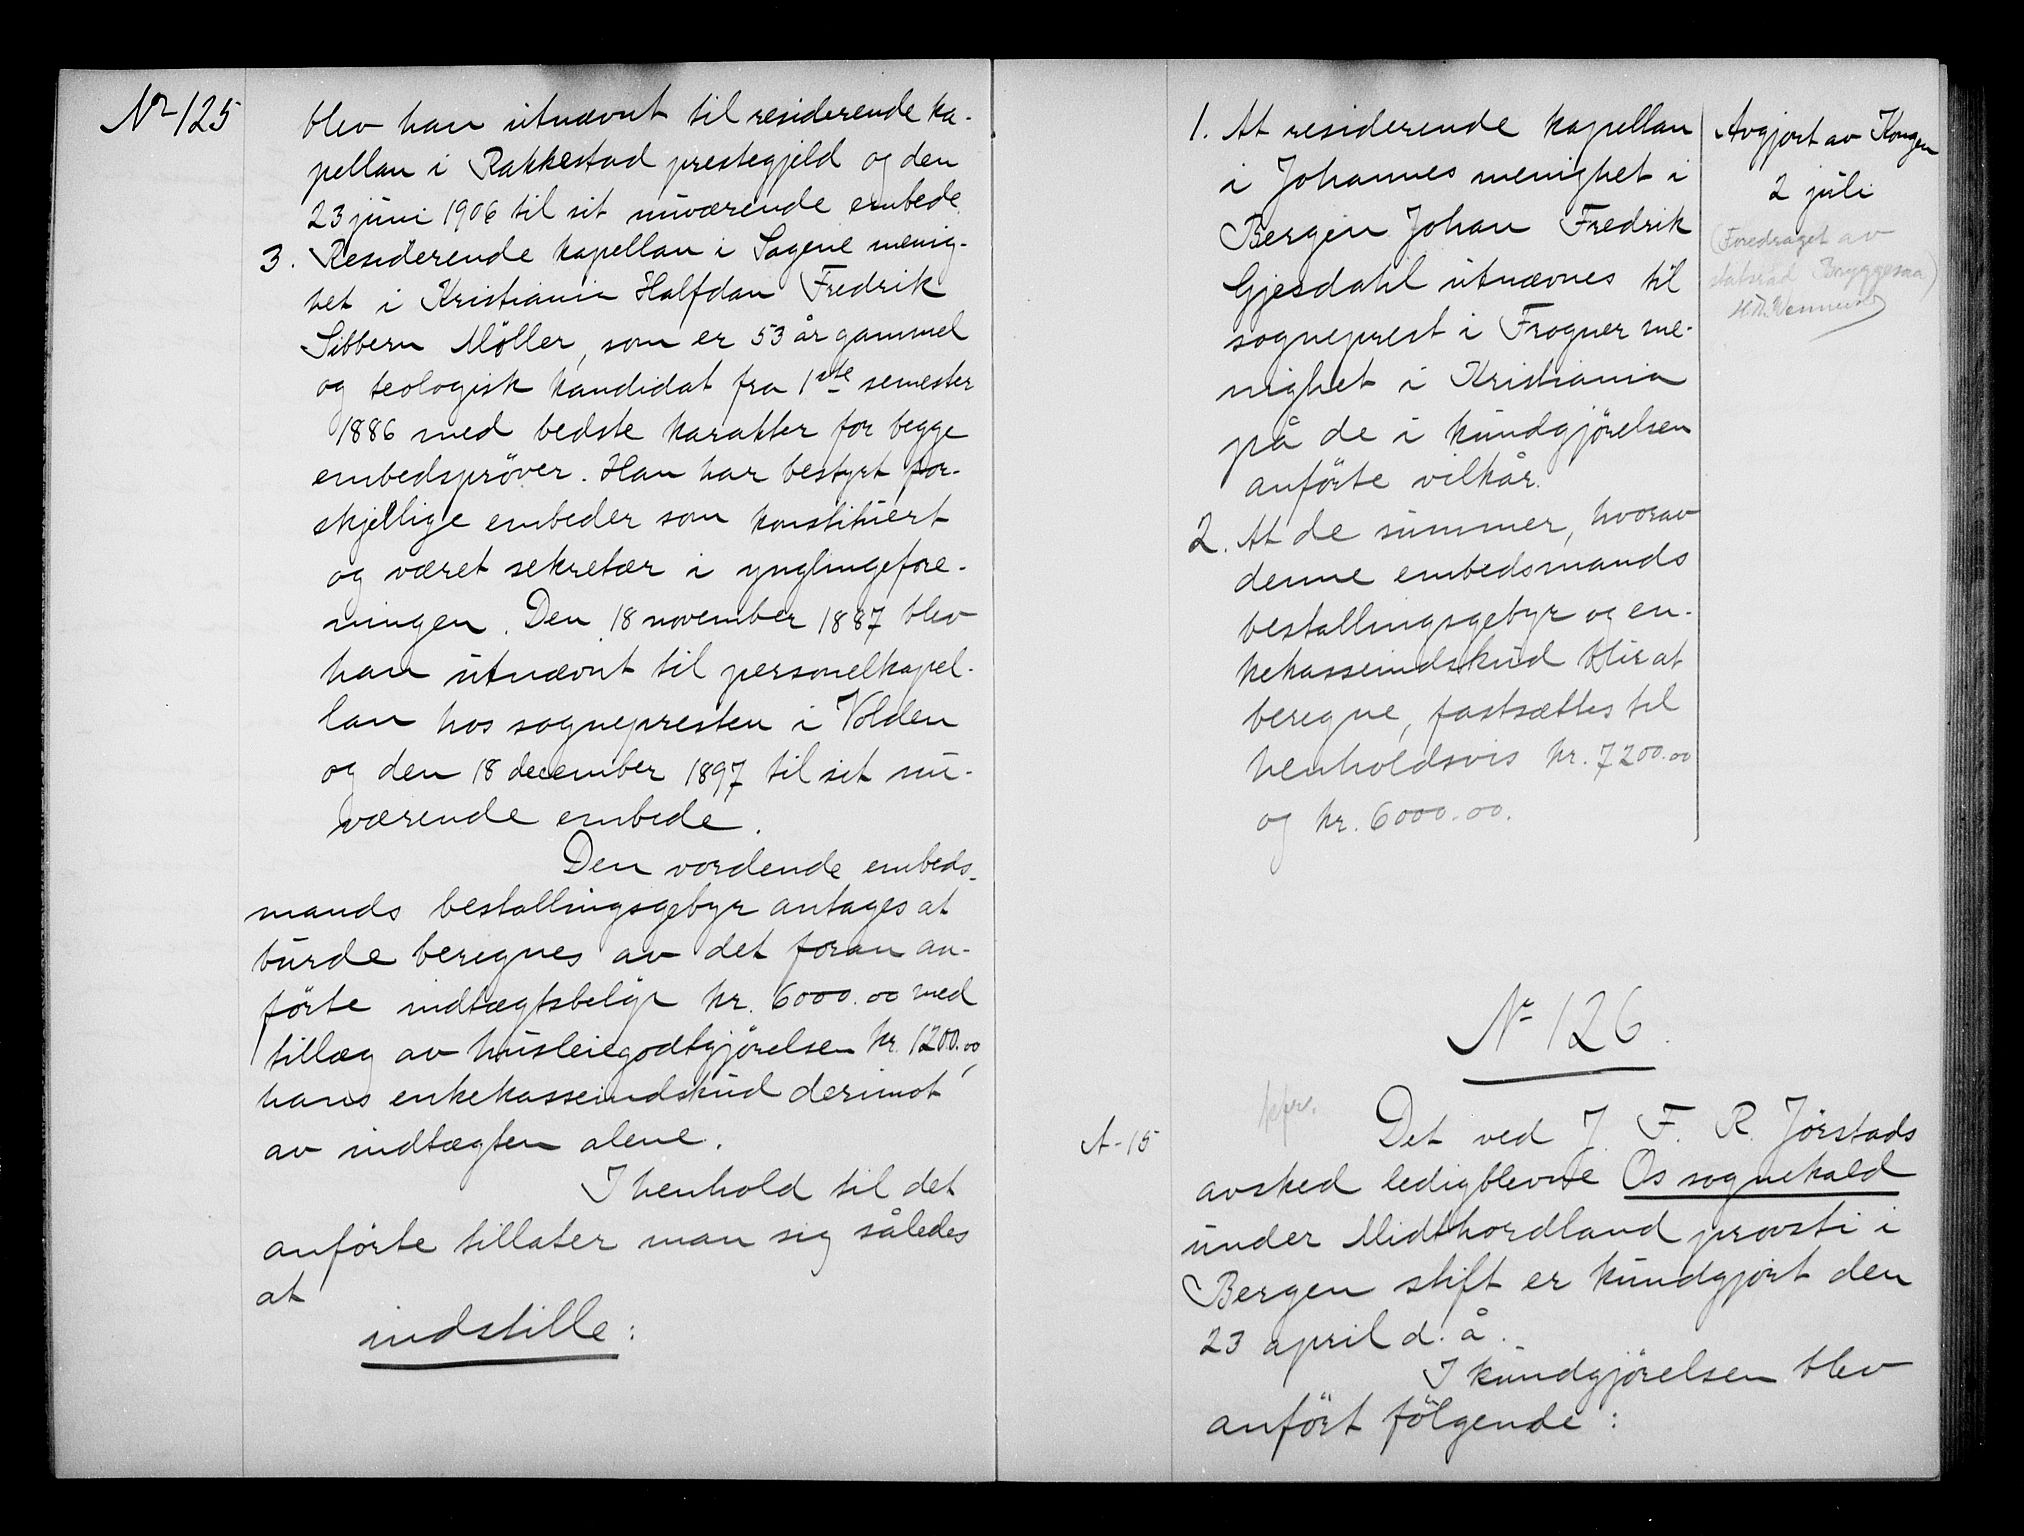 No 125
blev han utnævnt til residerende ka-
pellan i Rakkestad prestegjeld og den
23 juni 1906 til sit nuværende embede.
3. Residerende kapellan i Sagene menig-
het i Kristiania Halfdan Fredrik
Sibbern Möller, som er 53 år gammel
og teologisk kandidat fra 1ste semester
1886 med bedste karakter for begge
embedsprøver. Han har bestyrt for-
skjellige embeder som konstituert
og været sekretær i ynglingefore-
ningen. Den 18 november 1887 blev
han utnævnt til personelkapel-
lan hos sognepresten i Volden
og den 18 december 1897 til sit nu-
værende embede.
Den vordende embeds-
mands bestallingsgebyr antages at
burde beregnes av det foran an-
förte indtægtsbelöp kr. 6000.00 med
tillæg av husleiegodtgjörelsen kr. 1200.00,
hans enkekasseindskud derimot
av indtægten alene.
I henhold til det
anförte tillater man sig således
at
indstille:
1. At residerende kapellan
i Johannes menighet i
Bergen Johan Fredrik
Gjesdahl utnævnes til
sogneprest i Frogner me-
nighet i Kristiania
på de i kundgjörelsen
anförte vilkår.
2. At de summer, hvorav
denne embedsmands
bestallingsgebyr og en-
kekasseindskud blir at
beregne, fastsættes til
henholdsvis kr. 7200.00
og kr. 6000.00.
Avgjort av Kongen
2 juli
(Foredraget av
statsråd Bryggesaa)
No 126.
A-15
Det ved J. F. R. Jörstads
avsked ledigblevne Os sognekald
under Midthordland provsti i
Bergen stift er kundgjort den
23 april d. å.
I kundgjörelsen blev
anfört fölgende: